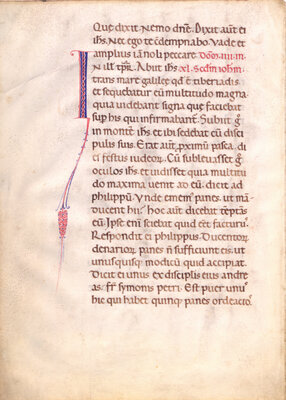 Que dixit. Nemo dn̄e. Dixit aūt ei
ih̄s. Nec ego te ɔdempnabo. Vade et
amplius iā noli peccare. Dōm. iiii. in
N ill tp̄r. Abiit ih̄s xl. Scdm ioh̄m.
trans mare galilee qd̄ ē tiberiadis.
et sequebatur eū multitudo magna
quia uidebant signa que faciebat
sup his qui infirmabant. Subiit g̊
in montē ih̄s et ibi sedebat cū disci
pulis suis. Erat aūt pxīmū pasca.
di es festus iudeor. Cū subleuasset g̊
oculos ih̄s et uidisset quia multitu
do maxima uenit ad eū: dicit ad
philippū. Unde ememꝰ panes. ut mā
ducent hii? Hoc aūt dicebat tēptās
eū. Ipse enī sciebat quid eēt facturꝰ.
Respondit ei philippus. Ducentor
denarior panes n̄ sufficiunt eis. ut
unusquisqꝫ modicū quid accipiat.
Dicit ei unus ex disciplis eius andre
as. fr̄ symonis petri. Est puer unus
hic qui habet quinqꝫ panes ordeacios